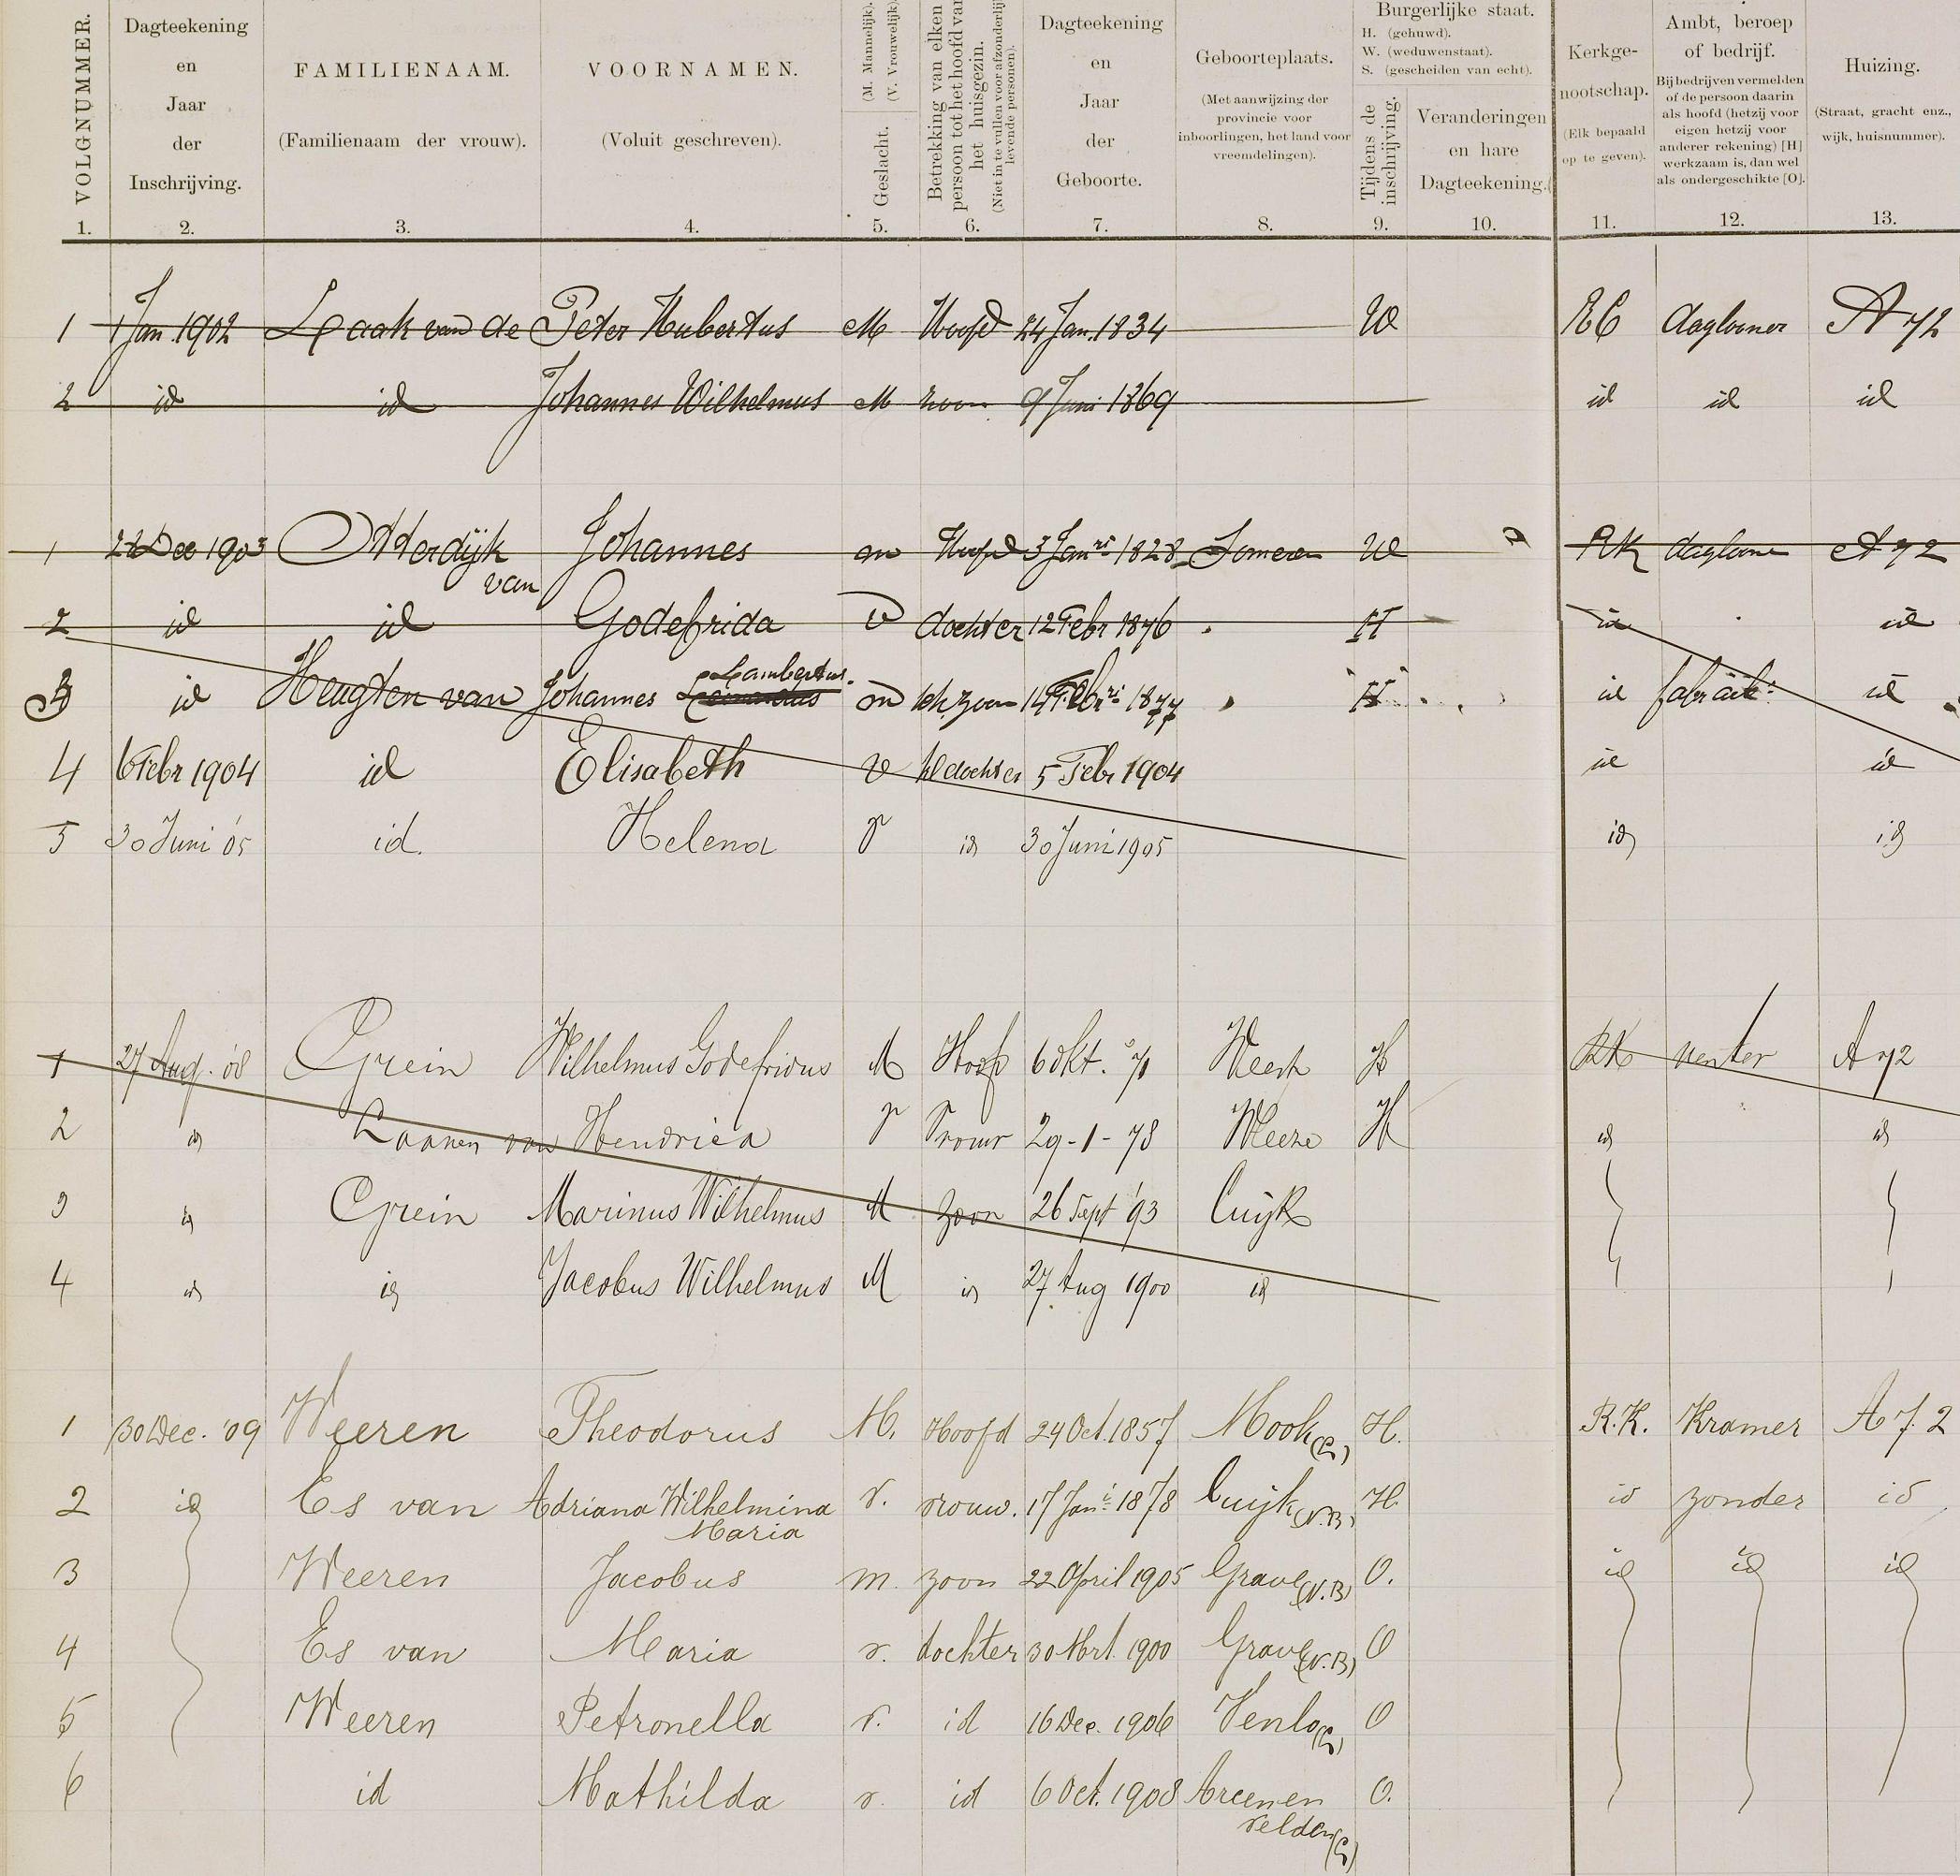 VOLGNUMMER.
Dagteekening en Jaar der Inschrijving.
FAMILIENAAM. (Familienaam der vrouw).
VOORNAMEN. (Voluit geschreven).
(M. Mannelijk). (V. Vrouwelijk). Geslacht.
Betrekking van elken persoon tot het hoofd van het huisgezin. (Niet in te vullen voor afzonderlijk levende personen).
Dagteekening en Jaar der Geboorte.
Geboorteplaats. (Met aanwijzing der provincie voor inboorlingen, het land voor vreemdelingen).
Burgerlijke staat. H. (gehuwd). W. (weduwenstaat). S. (gescheiden van echt).
Tijdens de inschrijving.
Veranderingen en hare Dagteekening.
Kerkgenootschap. (Elk bepaald op te geven).
Ambt, beroep of bedrijf. Bij bedrijven vermelden of de persoon daarin als hoofd (hetzij voor eigen hetzij voor anderer rekening) [H] werkzaam is, dan wel als ondergeschikte [O].
Huizing. (Straat, gracht enz., wijk, huisnummer).
1. 2. 3. 4. 5. 6. 7. 8. 9. 10. 11. 12. 13.
1 1 Jan. 1902 Laak van de Peter Hubertus M Hoofd 24 Jan. 1834 W RC daglooner A 72
2 id id Johannes Wilhelmus M zoon 9 Juni 1869 id id id
1 22 Dec 1903 Otterdijk van Johannes m Hoofd 3 Janri 1828 Someren W RK dagloone A 72
2 id id Godefrida v dochter 12 Febr 1876 H id id
3 id Heugten van Johannes Lambertus m sch. zoon 14 Febri 1877 H id fabriek: id
4 6 Febr 1904 id Elisabeth v kl dochter 5 Febr 1904 id id
5 30 Juni '05 id. Helena v id 30 Juni 1905 id id
1 27 Aug. '08 Grein Wilhelmus Godefridus M Hoofd 6 Okt. '71 Weert H RK venter A 72
2 id Laanen van Hendrica v Vrouw 29-1-78 Weeze H id id
3 id Grein Marinus Wilhelmus M zoon 26 Sept '93 Cuijk
4 id id Jacobus Wilhelmus M id 27 Aug 1900 id
1 30 Dec. '09 Weeren Theodorus M. Hoofd 24 Oct. 1857 Mook (L) H. R.K. Kramer A 72
2 id Es van Adriana Wilhelmina Maria v. vrouw. 17 Jani 1878 Cuijk (N.B) H. id zonder id
3 Weeren Jacobus m. zoon 22 April 1905 Grave (N.B) O. id id id
4 Es van Maria v. dochter 30 Mrt. 1900 Grave (N.B) O
5 Weeren Petronella v. id 16 Dec. 1906 Venlo (L) O
6 id Mathilda v. id 6 Oct. 1908 Arcen en Velden (L) O.